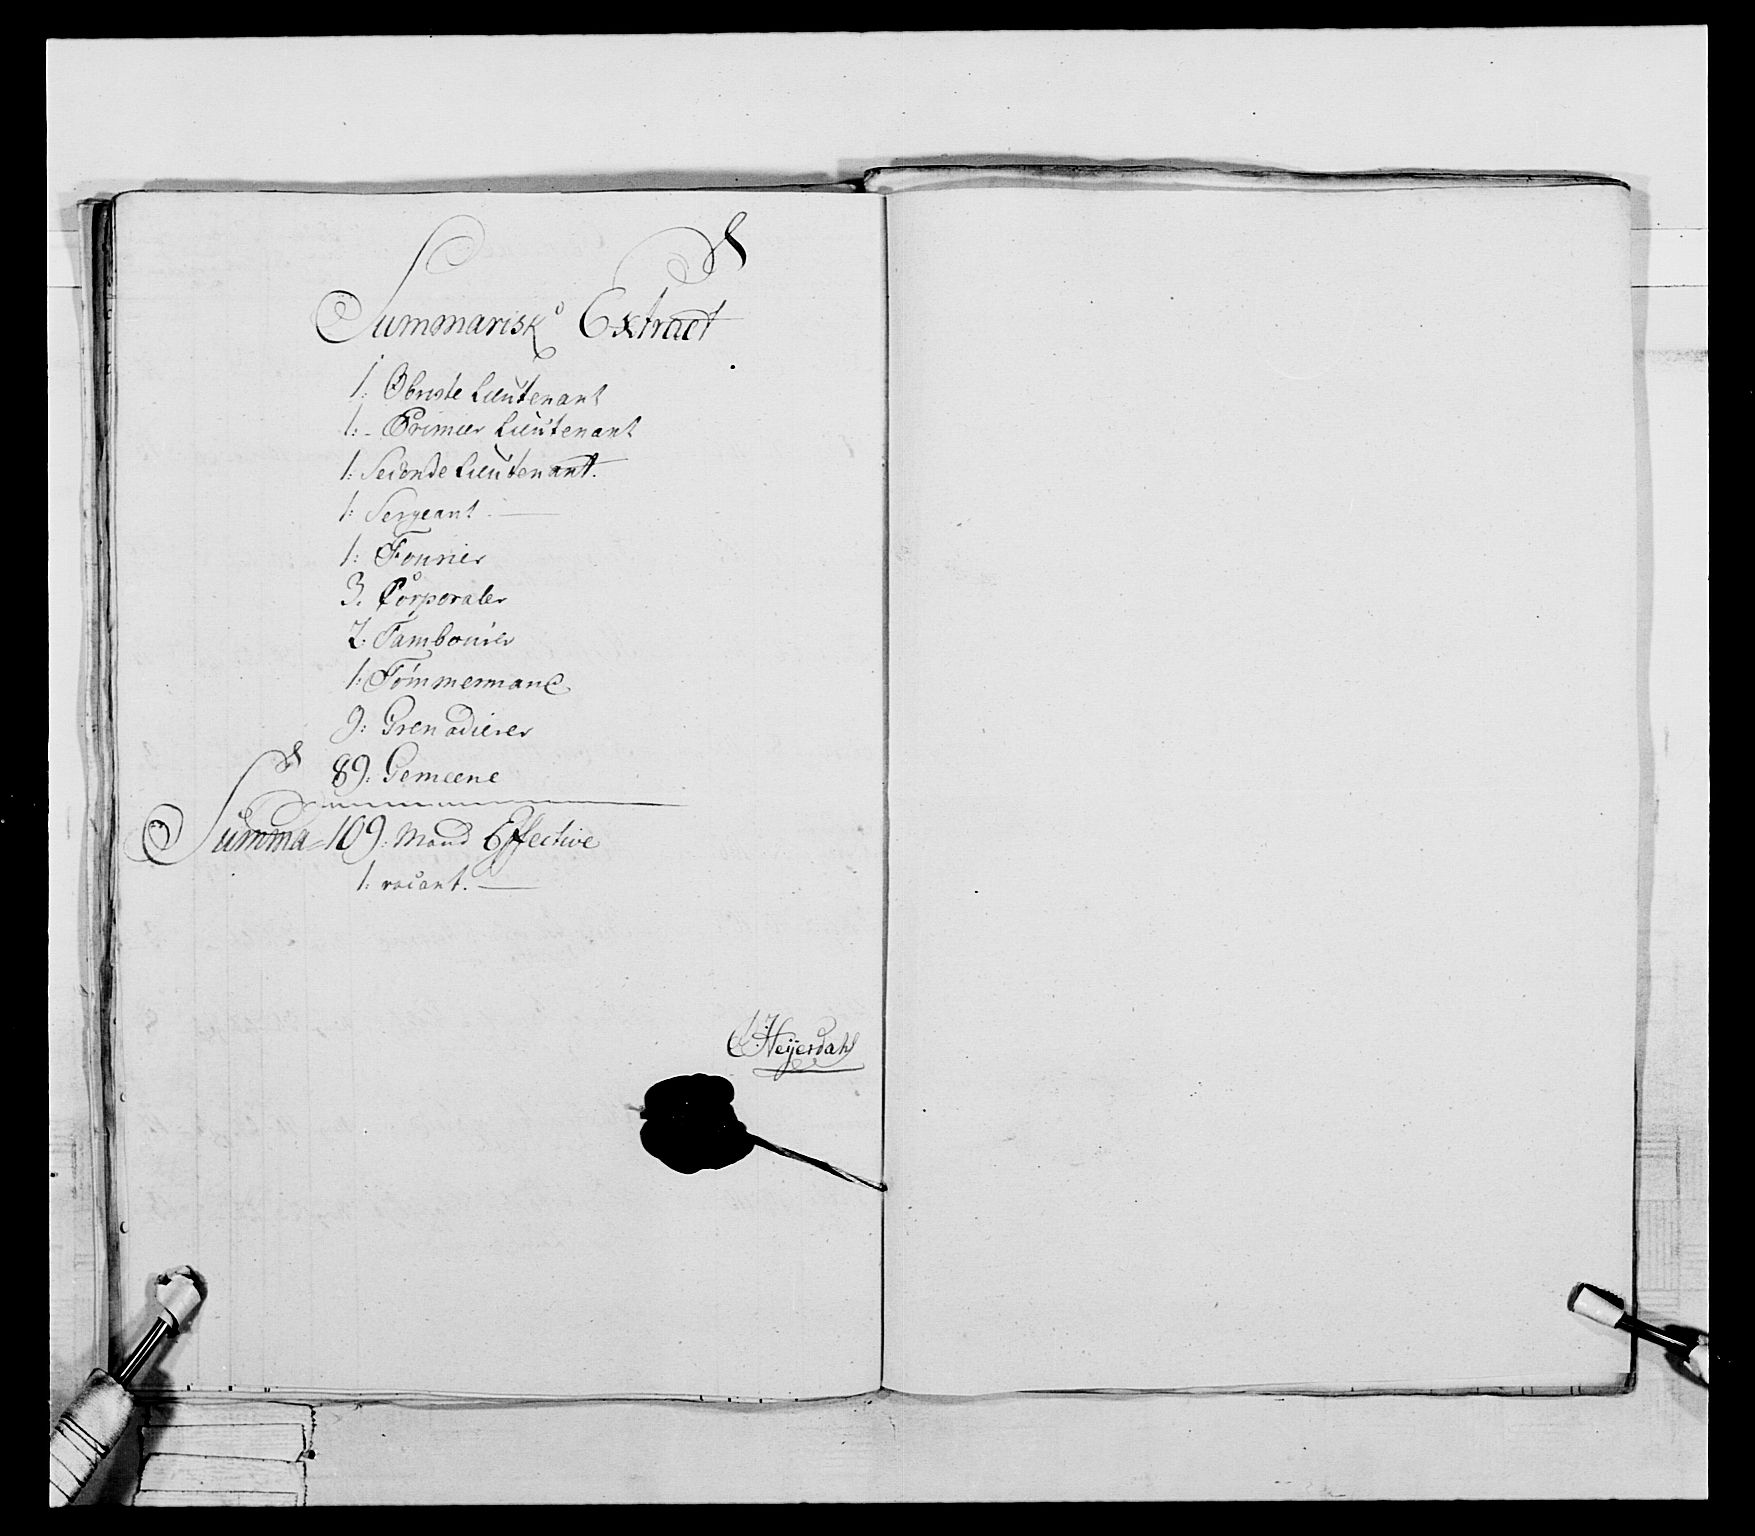 Summarisk Extract
1: Obriste Lieutenant
1:- Primier Lieutenant
1: Seconde Lieutenant.
1: Sergeant
1: Fourier
3. Corporaler
2. Tambourer
1: Tømmermand
9: Grenadierer
89: Gemeene
Summa = 109: Mand Effective
1: vacant.
Heÿerdahl